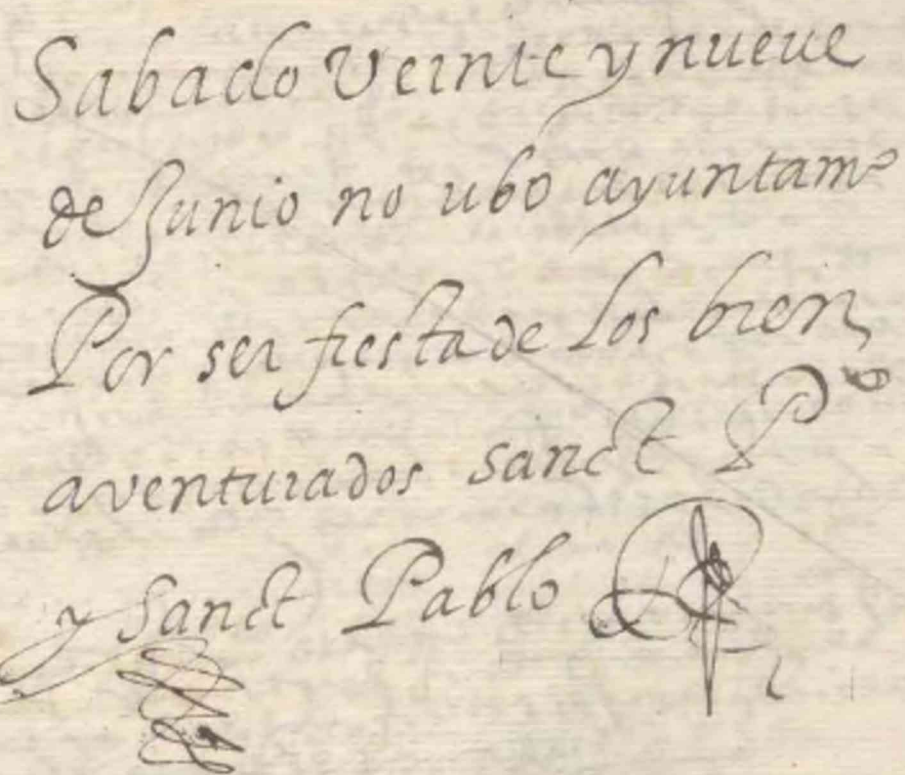 Sabado Veinte y nueue
de Junio no ubo ayuntamº
Por ser fiesta de los bien
aventurados sanct Pº
y Sanct Pablo